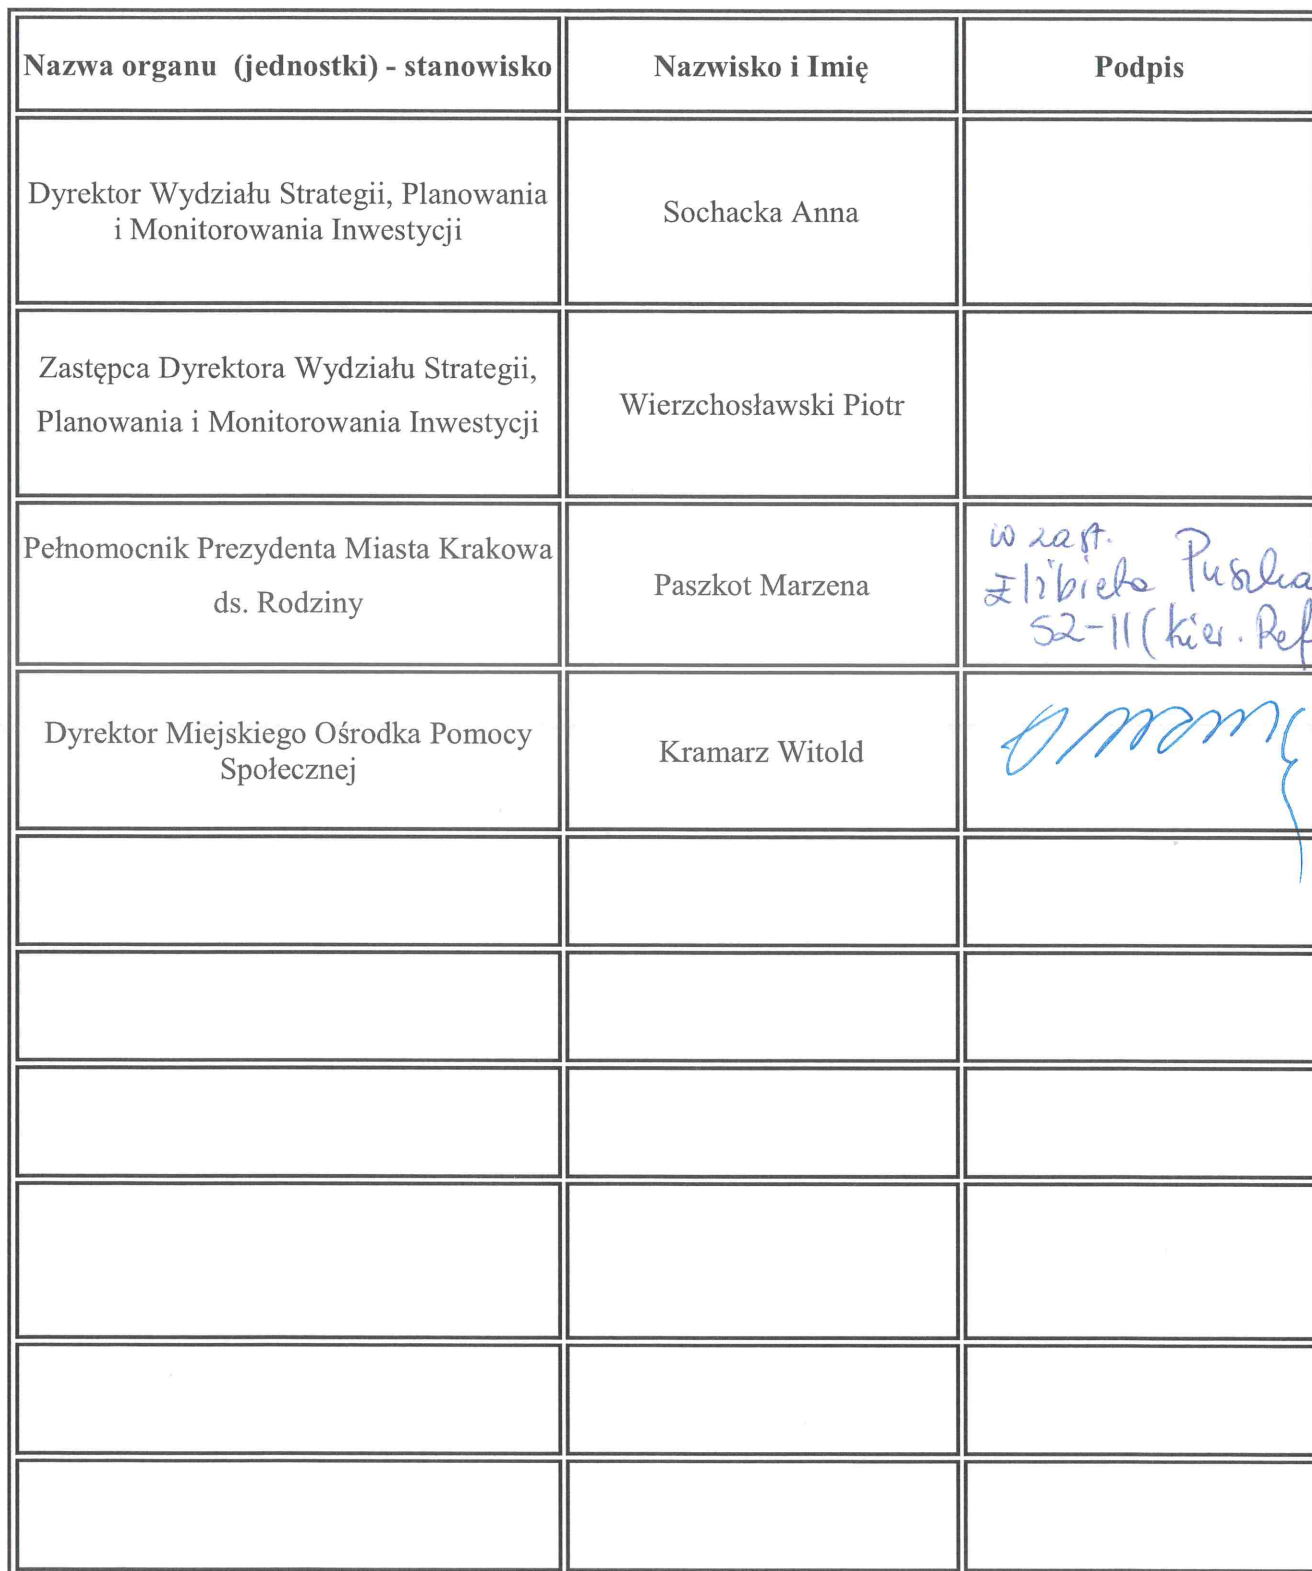 Nazwa organu (jednostki) - stanowisko
Nazwisko i Imię
Podpis
Dyrektor Wydziału Strategii, Planowania
i Monitorowania Inwestycji
Sochacka Anna
Zastępca Dyrektora Wydziału Strategii,
Planowania i Monitorowania Inwestycji
Wierzchosławski Piotr
Pełnomocnik Prezydenta Miasta Krakowa
ds. Rodziny
Paszkot Marzena
w zast.
Elżbieta
(kier. Ref
Dyrektor Miejskiego Ośrodka Pomocy
Społecznej
Kramarz Witold